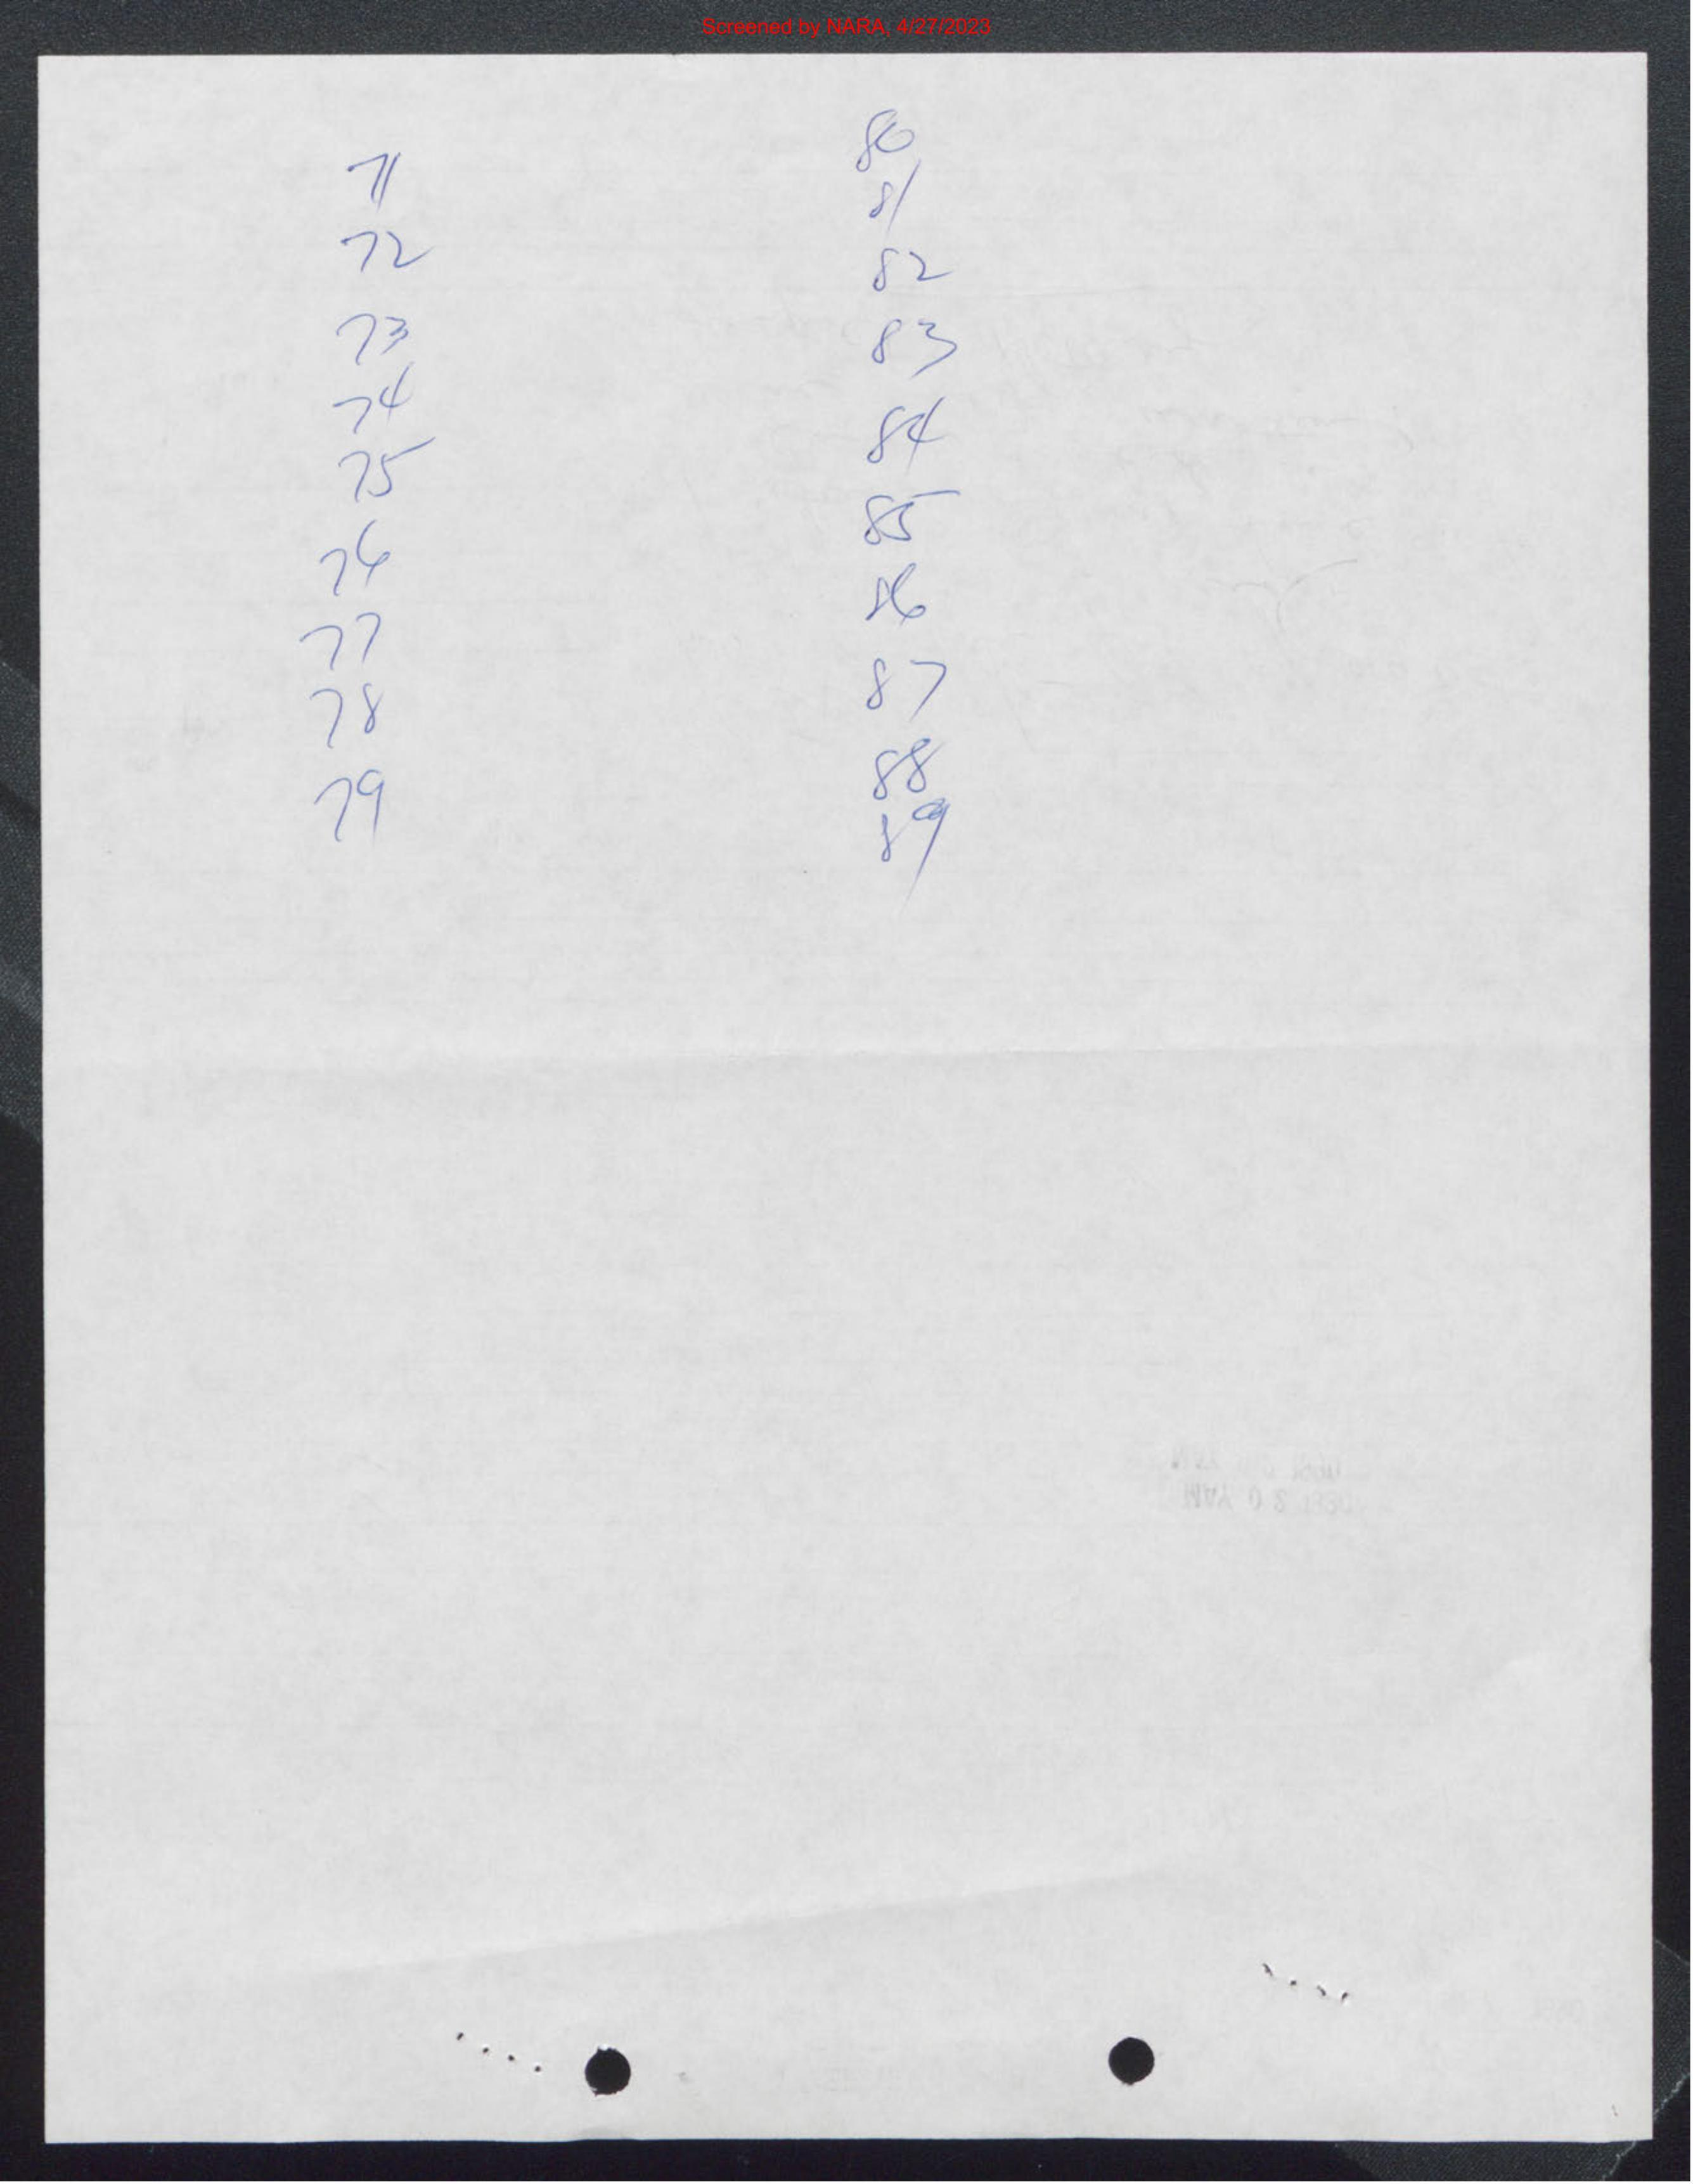 Screened by NARA, 4/27/2023
71
72
73
74
75
76
77
78
79
80
81
82
83
84
85
86
87
88
89